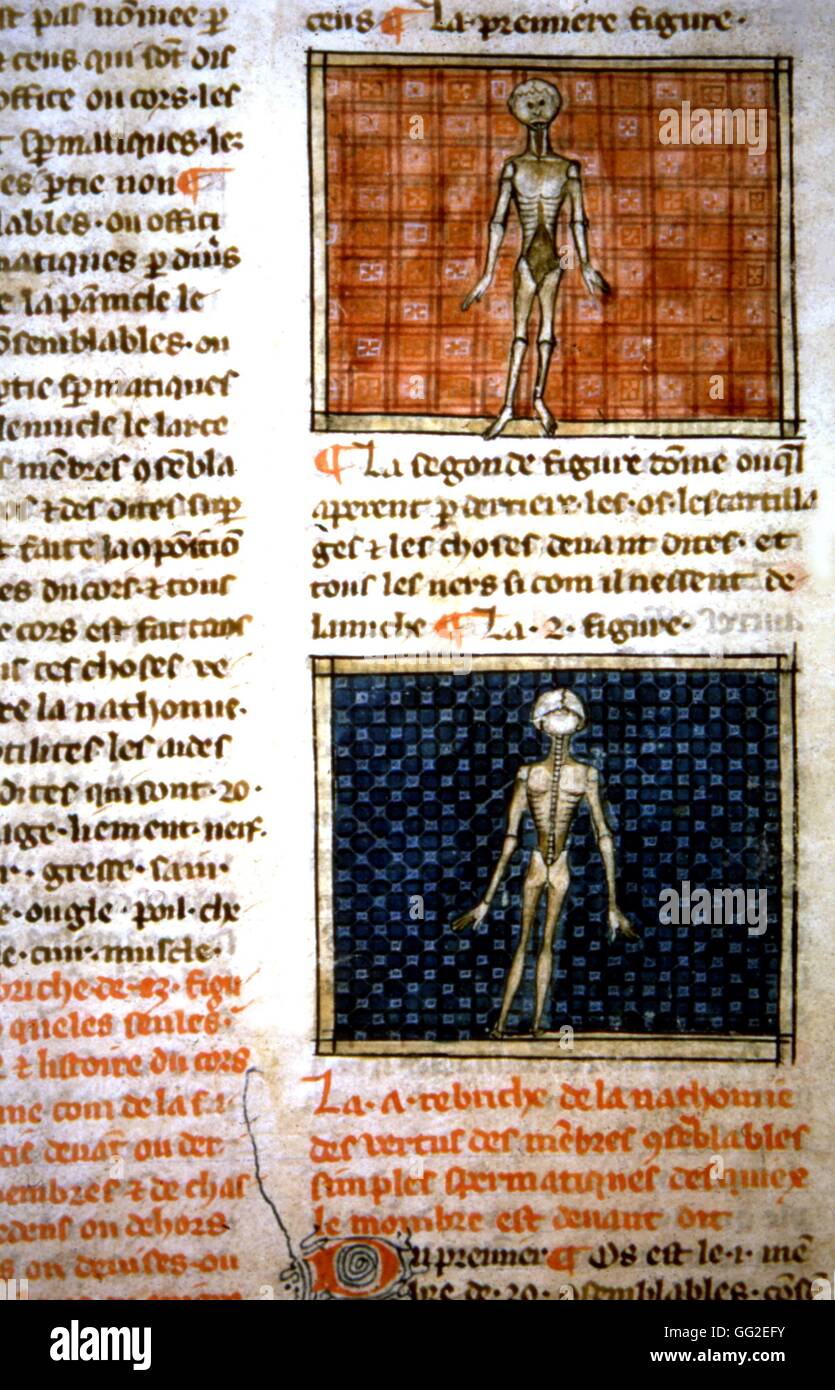 st pas nōmee ꝑ
t ceus qui sōt dis
office ou cors·les
t sꝑmatiques·les
es ꝑtie non¶
lables·ou offici
matiques ꝑ diūs
e la pāmcle le
ōsemblables·ou
ptie sꝑmatiques
les mēbres ꝯsēbla
us ⁊ des dites suꝑ
t faite la ꝯpōsiciō
es du cors·⁊ tous
e cors est fait tans
us ces choses ve
re la nathomie·
utilites les aides
dites qui sont·20·
uge·liement·nerf·
gresse·sain·
e·ougle·poil·che
le·cuir·muscle·
briche·de·13·figu
queles seules·
⁊ histoire du cors
me com de la
cis devāt ou der
membres ⁊ de chas
dedens ou dehors
s ou devises·ou
cens ¶ La premiere figure·
¶ La segonde figure dōme ou ql
aperent ꝑ derriere·les·os·les cartilla
ges ⁊ les choses devant dites· et
tous les ners si com il nessent de
la nuche ¶ La·2·figure·
La·A·rebriche de la nathomie
des vertus des mēbres ꝯsēblables
simples spermatiques des quiex
le mombre est devant dit
Du premier ¶ Os est le·1·mē
bre·de·20·ꝯsemblables·
alamy
a
alamy
Image ID: GG2EFY
www.alamy.com